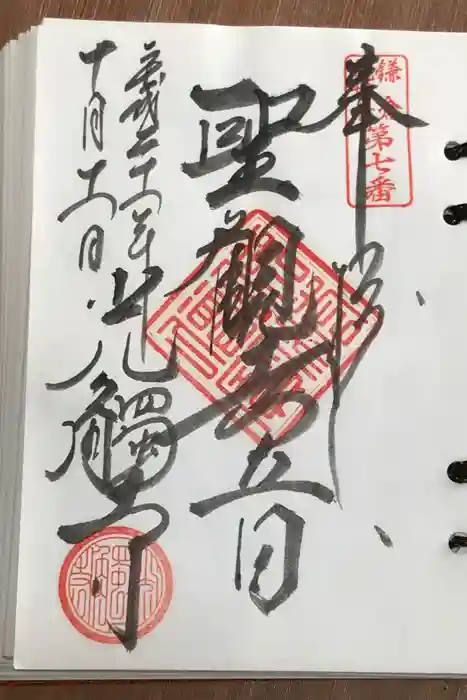 鎌倉第七番
奉拝
聖觀世音
光觸寺
平成二十一年
十月十一日